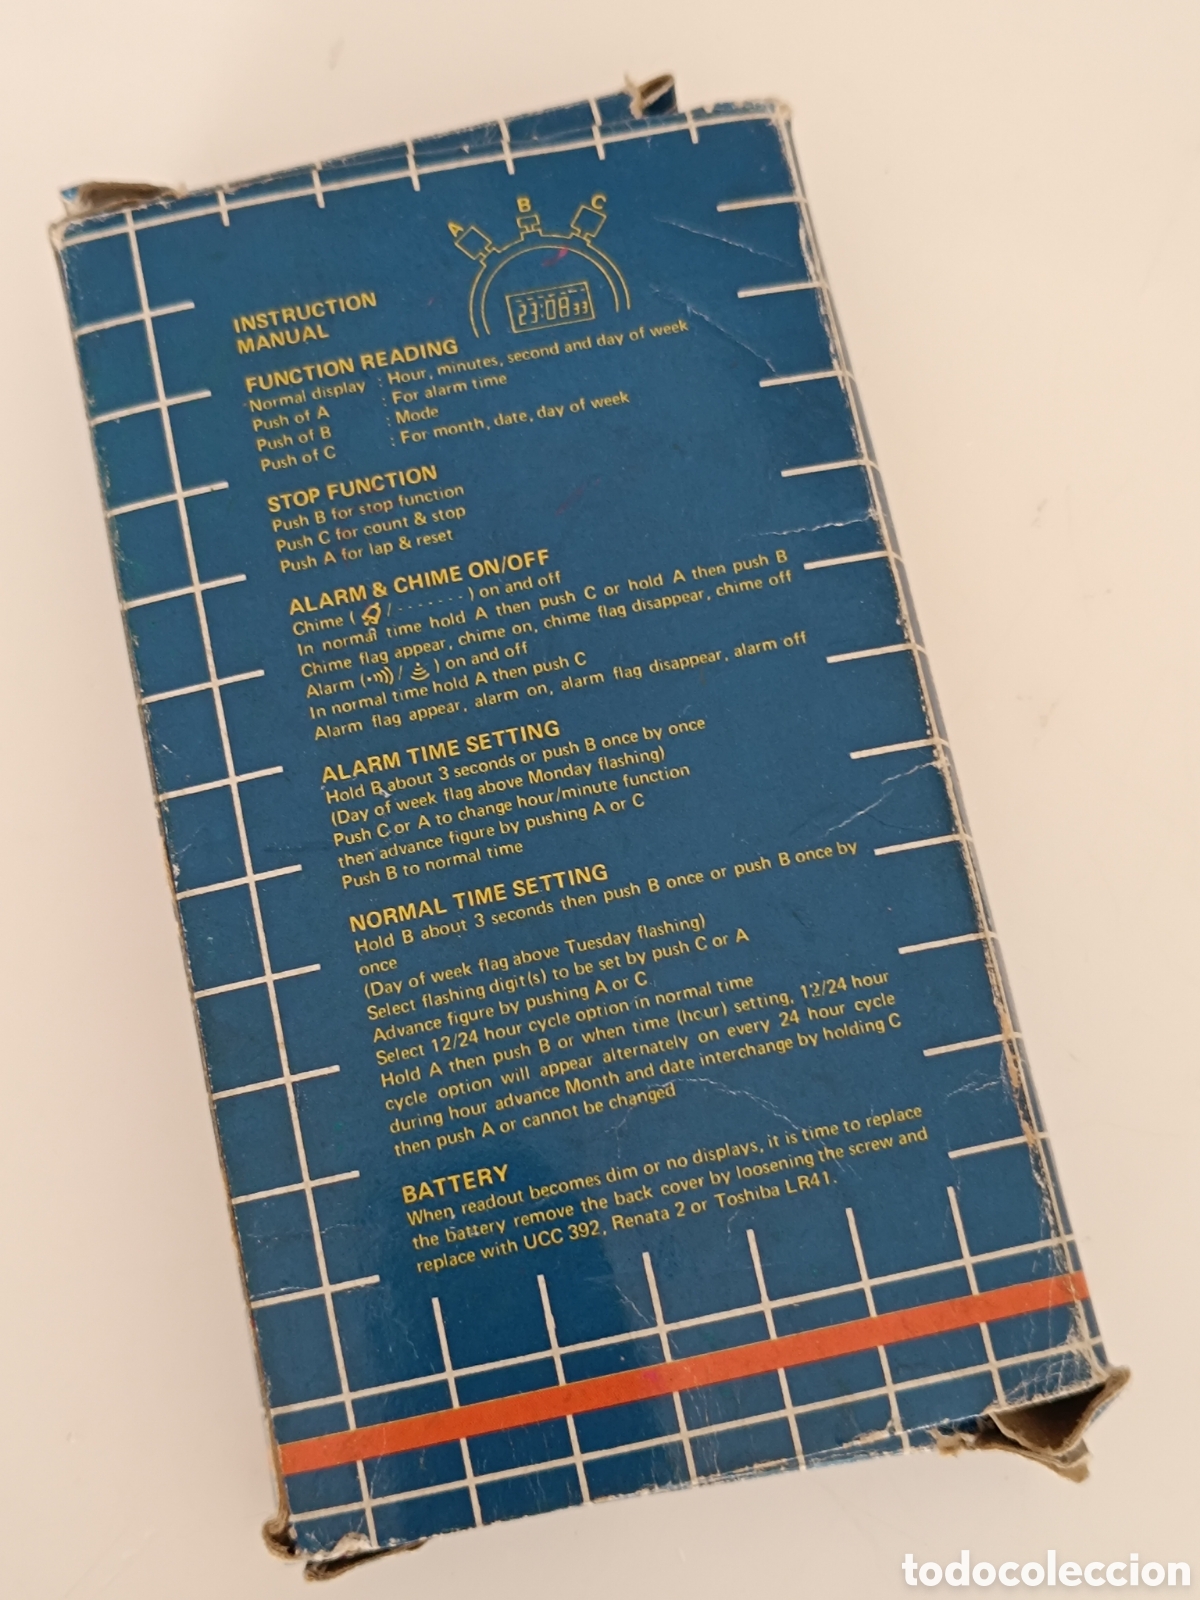 A
B
C
23:08 33
INSTRUCTION
MANUAL
FUNCTION READING
Normal display : Hour, minutes, second and day of week
Push of A : For alarm time
Push of B : Mode
Push of C : For month, date, day of week
STOP FUNCTION
Push B for stop function
Push C for count & stop
Push A for lap & reset
ALARM & CHIME ON/OFF
Chime ( / ------- ) on and off
In normal time hold A then push C or hold A then push B
Chime flag appear, chime on, chime flag disappear, chime off
Alarm ( / ) on and off
In normal time hold A then push C
Alarm flag appear, alarm on, alarm flag disappear, alarm off
ALARM TIME SETTING
Hold B about 3 seconds or push B once by once
(Day of week flag above Monday flashing)
Push C or A to change hour/minute function
then advance figure by pushing A or C
Push B to normal time
NORMAL TIME SETTING
Hold B about 3 seconds then push B once or push B once by
once
(Day of week flag above Tuesday flashing)
Select flashing digit(s) to be set by push C or A
Advance figure by pushing A or C
Select 12/24 hour cycle option in normal time
Hold A then push B or when time (hour) setting, 12/24 hour
cycle option will appear alternately on every 24 hour cycle
during hour advance Month and date interchange by holding C
then push A or cannot be changed
BATTERY
When readout becomes dim or no displays, it is time to replace
the battery remove the back cover by loosening the screw and
replace with UCC 392, Renata 2 or Toshiba LR41.
todocoleccion